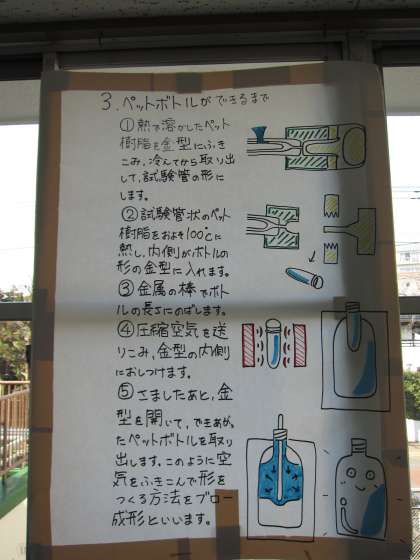 3.ペットボトルができるまで
①熱で溶かしたペット
樹脂を金型にふき
こみ,冷んてから取り出
して,試験管の形に
します。
②試験管状のペット
樹脂をおよそ100℃に
熱し,内側がボトルの
形の金型に入れます。
③金属の棒でボト
ルの長さにのばします。
④圧縮空気を送
りこみ,金型の内側
におしつけます。
⑤さましたあと,金
型を開いて,できあが
たペットボトルを取り
出します。このように空
気をふきこんで形を
つくる方法をブロー
成形といいます。